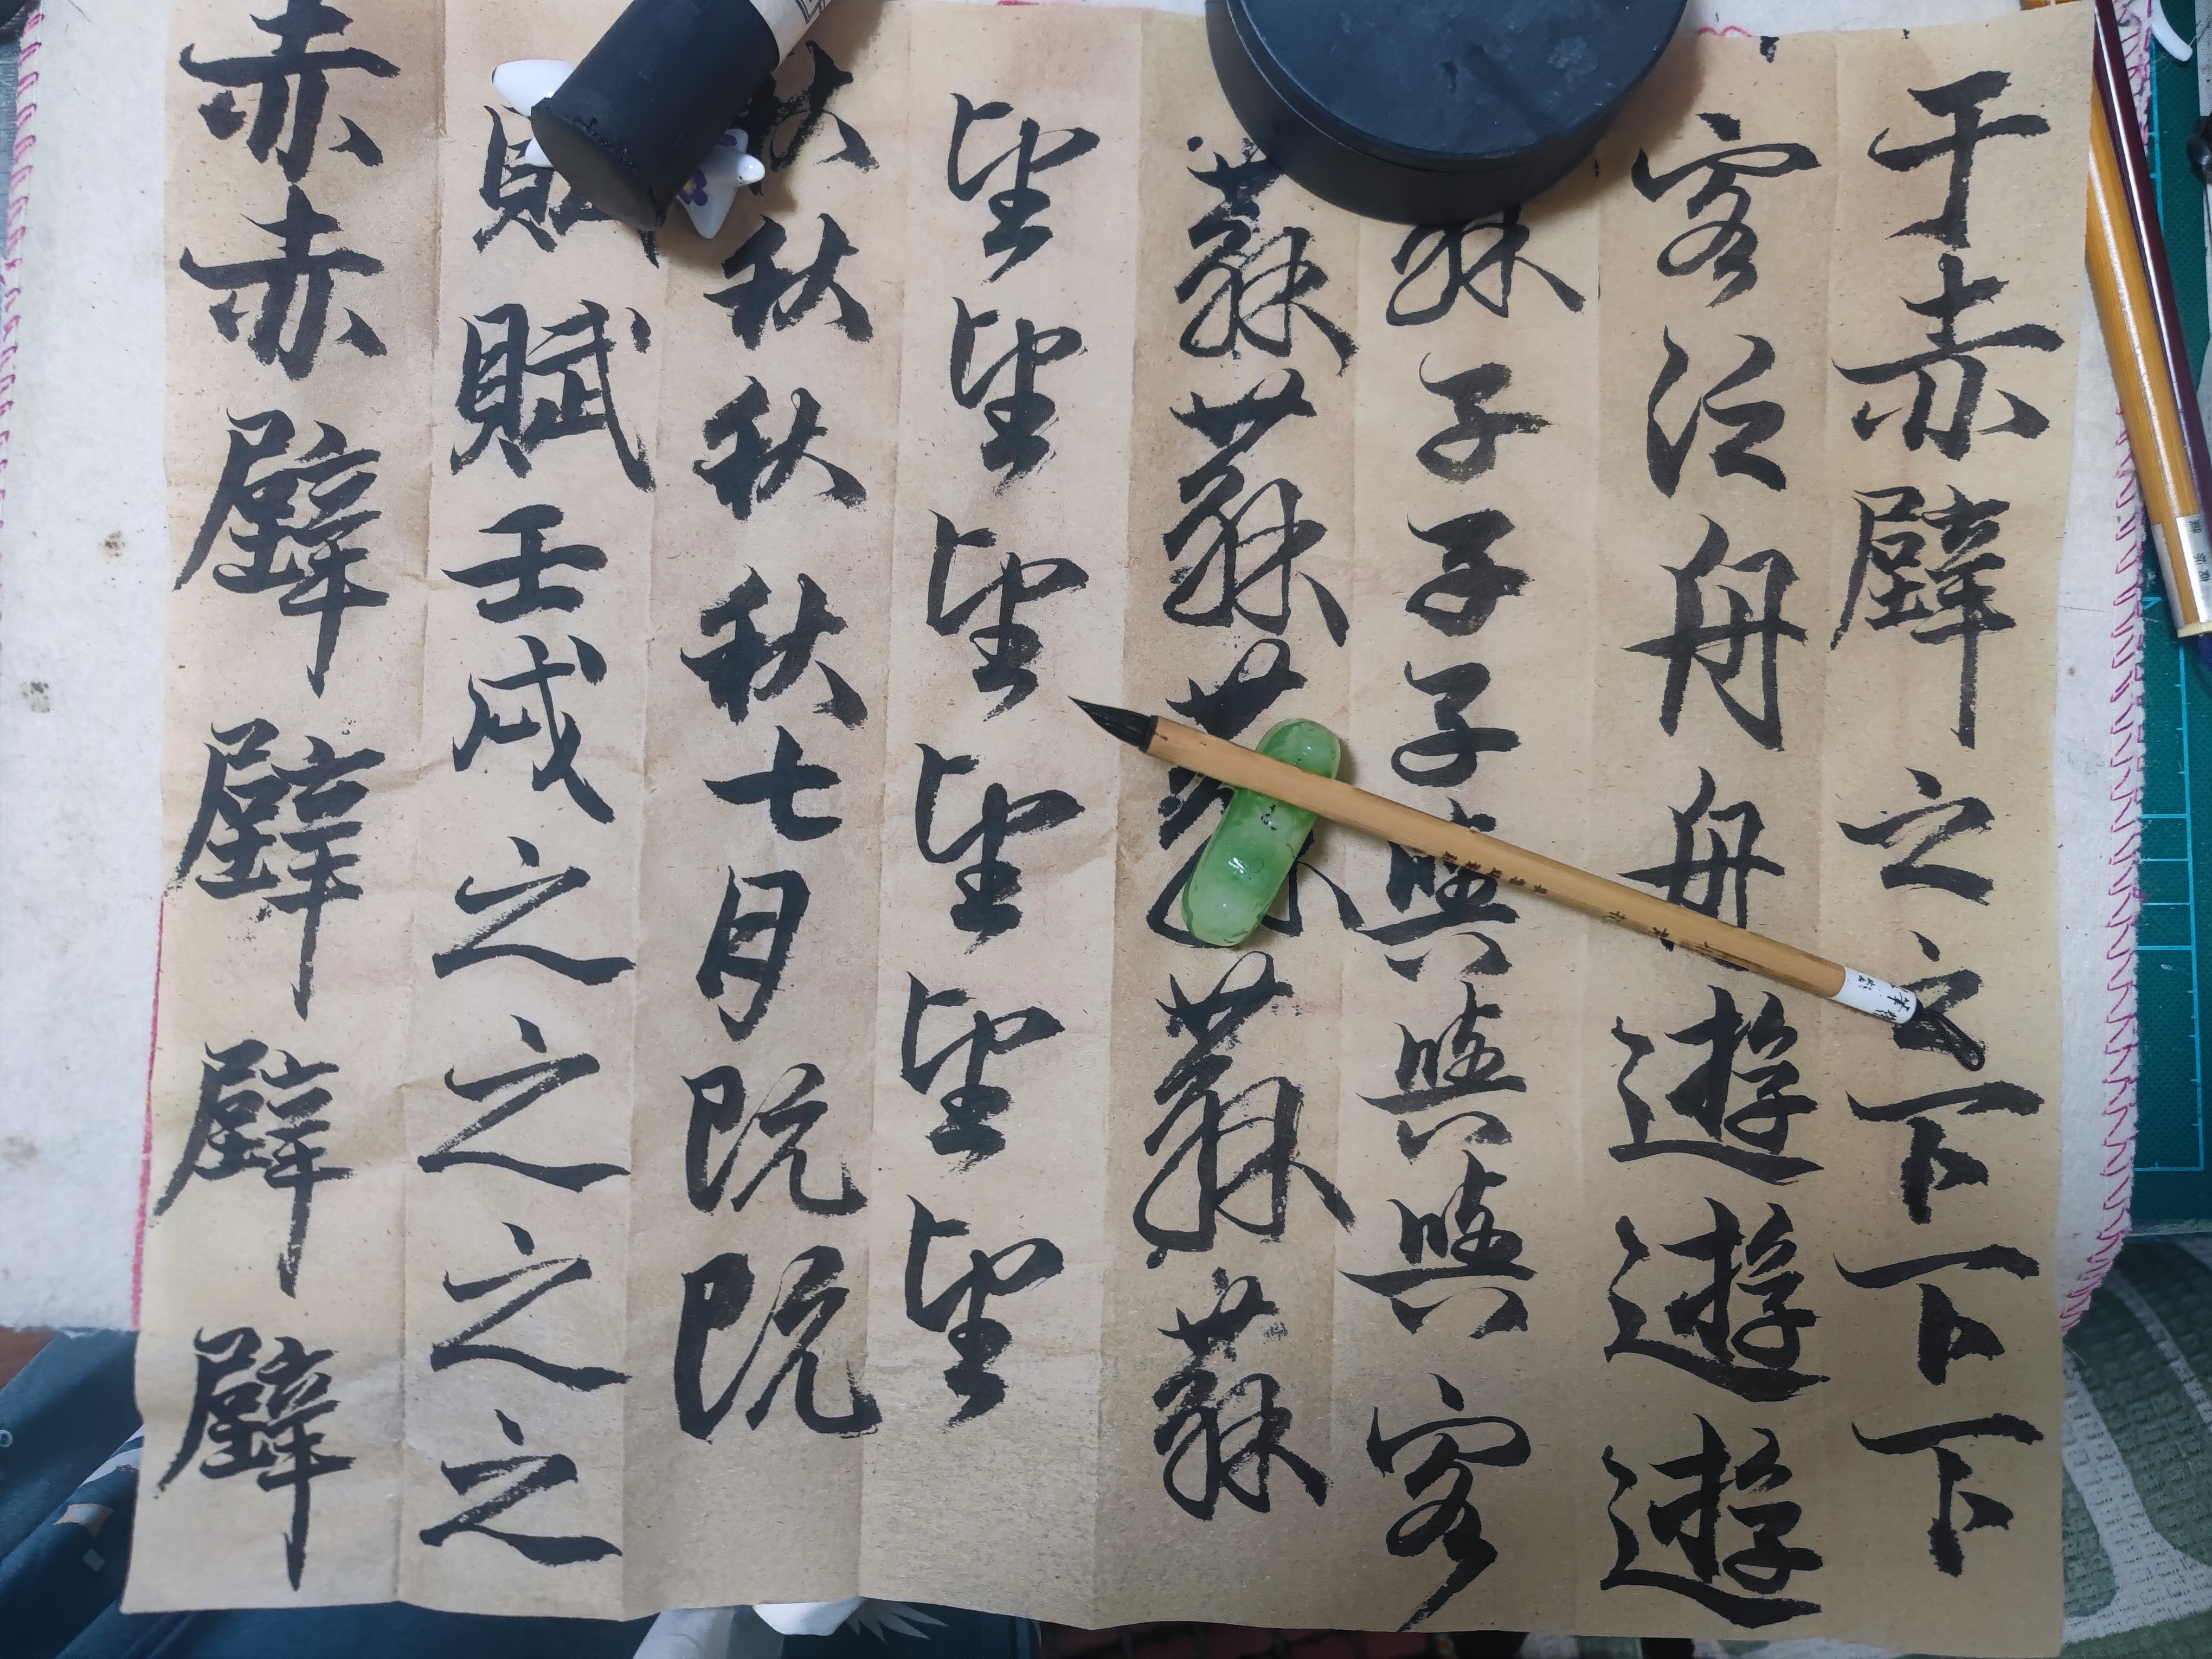 赤赤壁壁壁壁
賦賦壬戌之之之之
秋秋秋秋七月既既
望望望望望望
蘇蘇蘇蘇蘇
蘇子子子與與與客
客泛舟舟遊遊遊
于赤壁之之下下下